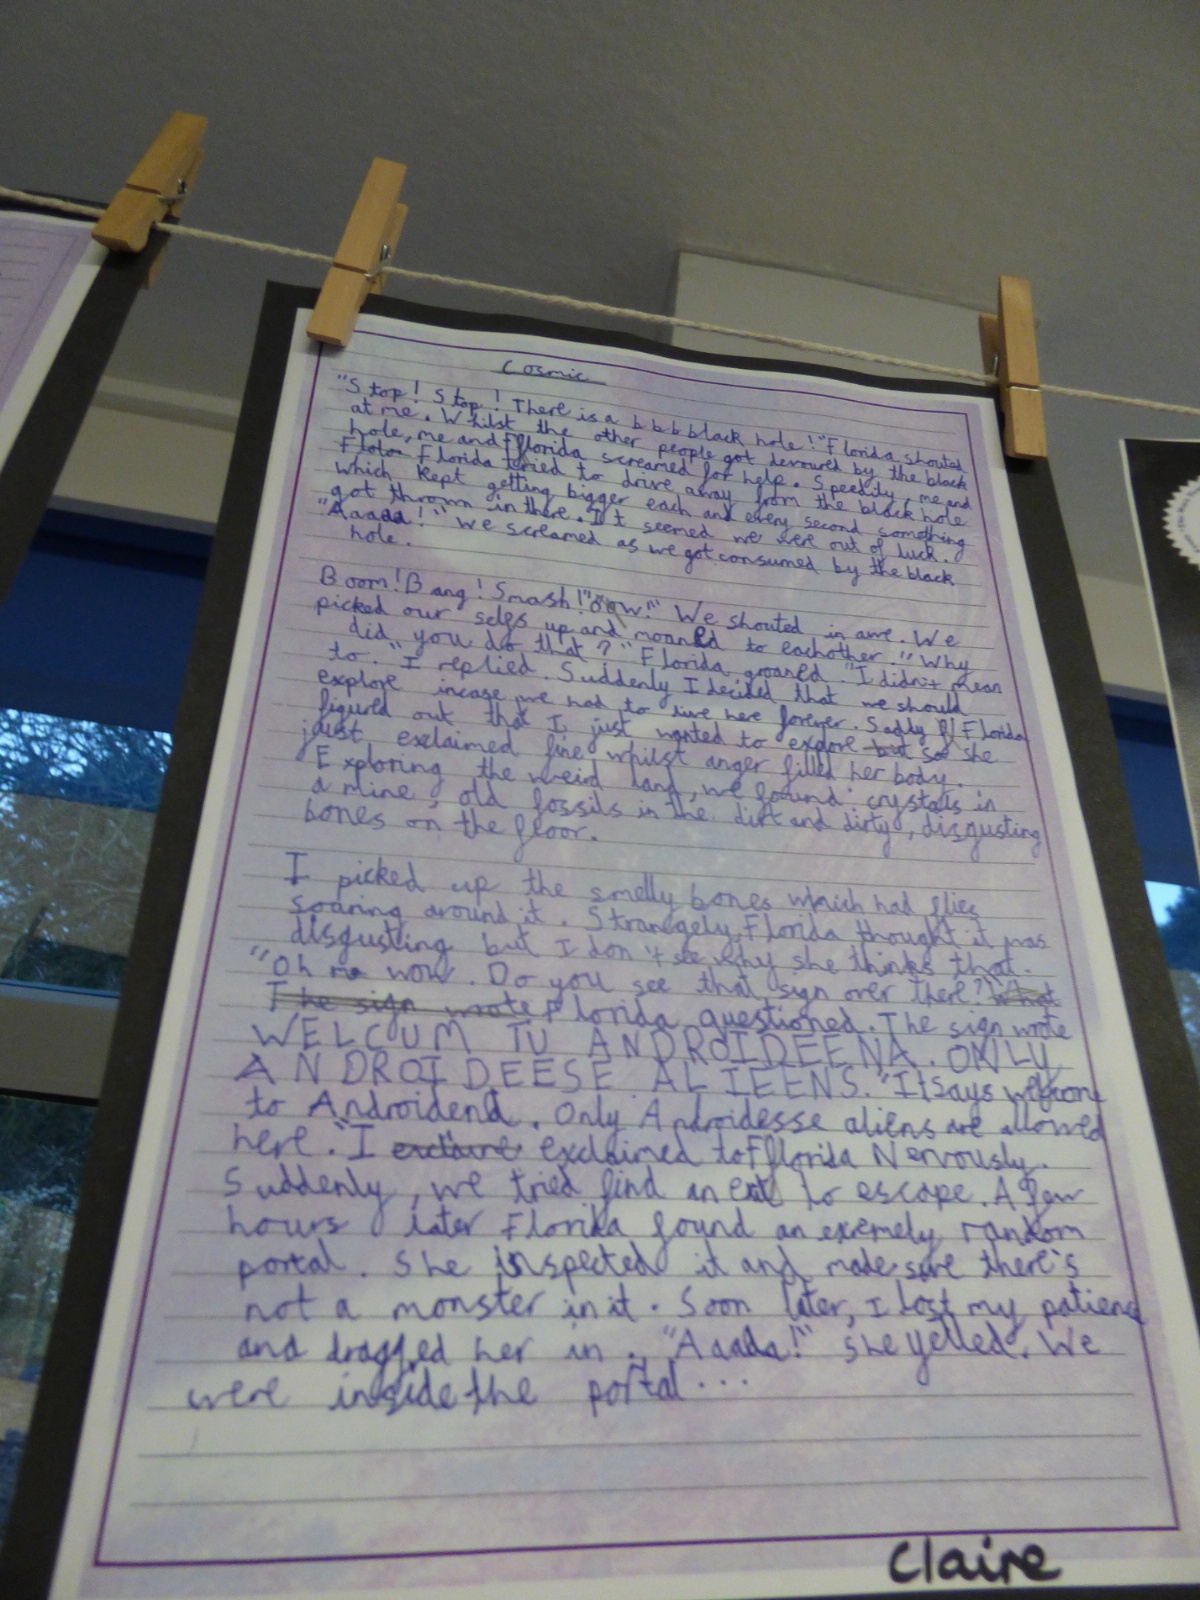 Cosmic
"Stop! Stop! There is a b b b black hole!" Florida shouted
at me. Whilst the other people got devoured by the black
hole, me and Fflorida screamed for help. Speedily, me and
Florida tried to drive away from the black hole
which kept getting bigger each and every second something
got thrown in there. It seemed we were out of luck.
"Aaaaa!" we screamed as we got consumed by the black
hole.
Boom! Bang! Smash! "Oow!" We shouted in awe. We
picked our selfs up and moaned to eachother. "Why
did you do that?" Florida groaned. "I didn't mean
to." I replied. Suddenly I decided that we should
explore incase we had to live here forever. Sadly Florida
figured out that I just wanted to explore but so she
just exclaimed fine whilst anger filled her body.
Exploring the weird land, we found: crystals in
a mine, old fossils in the dirt and dirty, disgusting
bones on the floor.
I picked up the smelly bones which had flies
soaring around it. Strangely, Florida thought it was
disgusting but I don't see why she thinks that.
"Oh wow. Do you see that sign over there?" What
The sign wrote Florida questioned. The sign wrote
WELCUM TU ANDROIDEENA. ONLY
ANDROIDEESE ALIEENS. "It says welcome
to Androidena. Only Androidesse aliens are allowed
here." I exclaimed to Fflorida Nervously.
Suddenly, we tried find an exit to escape. A few
hours later Florida found an exremely random
portal. She inspected it and made sure there's
not a monster in it. Soon later, I lost my patience
and dragged her in. "Aaaaa!" she yelled. We
were inside the portal...
Claire